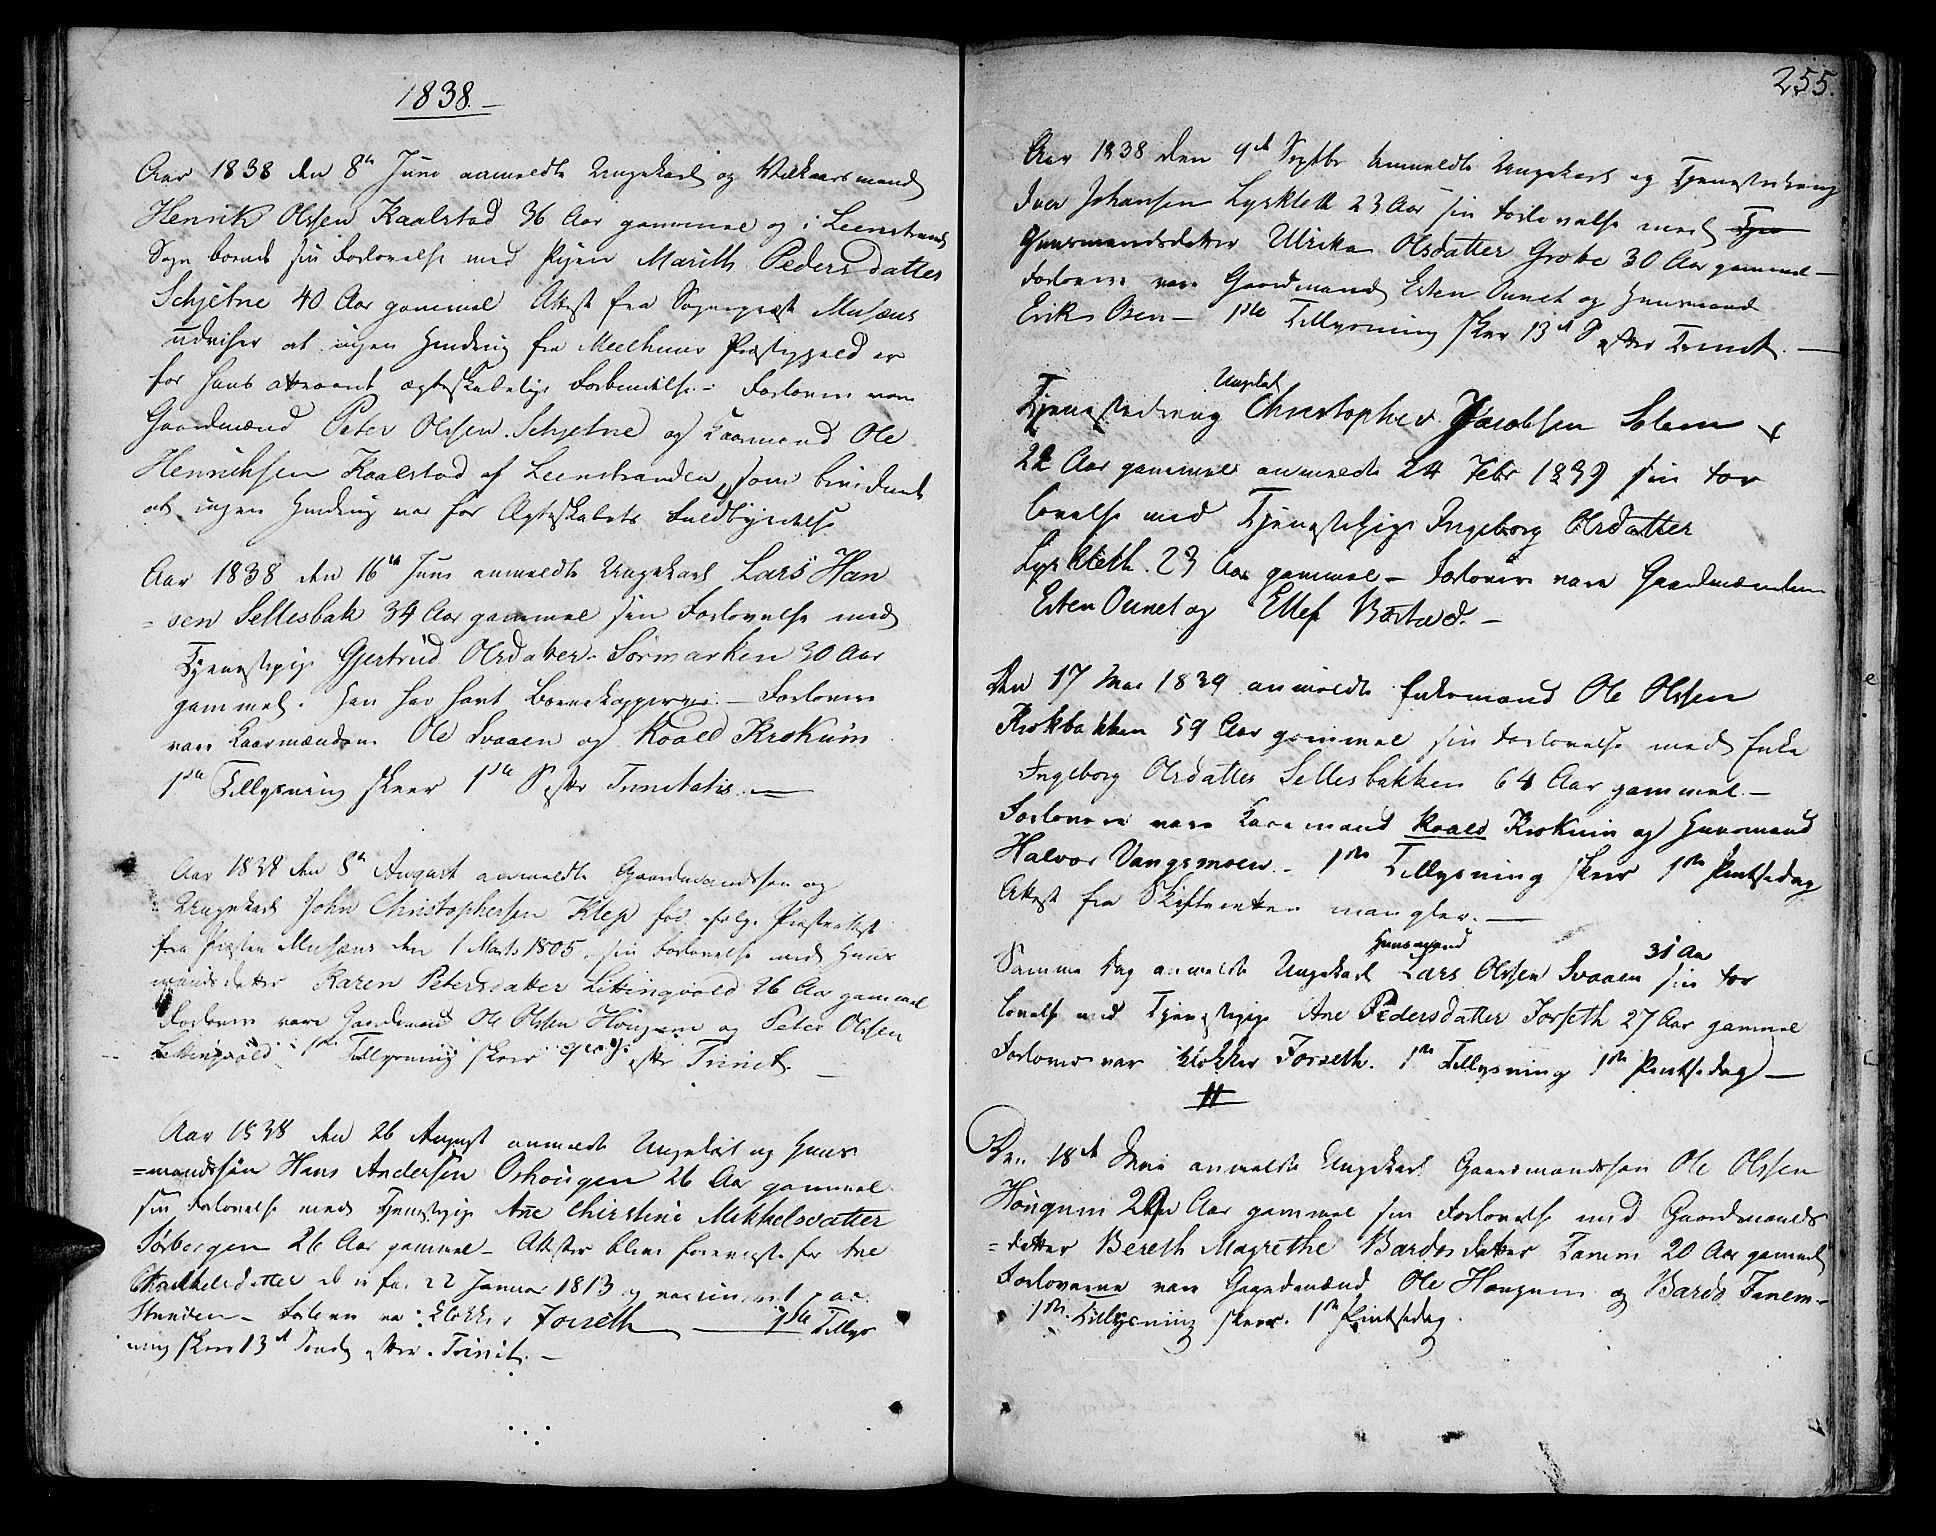 1838.
Aar 1838 den 8de Juni anmeldte Ungekarl og Vilkaarsmand
Henrik Olssen Kaalstad 36 Aar gammel og i Leenstrand
Sogn boende sin Forlovelse med Pigen Marith Peders datter
Schjetne 40 Aar gammel Attest fra Sognepræst Musæus
udviser at ingen Hindring fra Meelhuus Præstegjæld er
for hans attraaet ægteskabelige Forbindelse. Forlovere vare
Gaardmænd Peter Olssen Schjetne og Kaarmand Ole
Henrichsen Kaalstad af Leenstranden, som bevidnet
at ingen Hindring var for Ægteskabets Fuldbyrdelse
Aar 1838 den 16de Juni anmeldte Ungekarl Lars Han
=sen Sellesbak 34 Aar gammel sin Forlovelse med
Tjenestepige Gjertrud Olsdatter Sørmarken 30 Aar
gammel. Han har havt Børnekopperne. – Forlovere
vare Kaarmændene Ole Svaaen og Roald Krokum
1ste Tillysning skeer 1ste S efter Trinitatis. —
Aar 1838 den 5te August anmeldte Gaardmandssøn og
Ungekarl John Christophersen Klep fød ifølge Præsteattest
fra Præsten Musæus den 1 Marts 1805 sin Forlovelse med Huus
mandsdatter Karen Petersdatter Lettingvold 26 Aar gammel
Forlovere vare Gaardmænd Ole Olssen Hougum og Peter Olssen
Lettingvold 1ste Tillysning skeer efter Trinit. —
Aar 1838 den 26 August anmeldte Ungekarl og Huus
=mandssøn Hans Andersen Oshougen 26 Aar gammel
sin Forlovelse med Tjenestepige Ane Christine Mikkelsdatter
Sørborgen 26 Aar gammel – Attester bleve foreviiste for Ane
Mikkelsdatter at er født 22 Januar 1813 og vaccineret paa
Stranden – Forlovere var Klokker Forseth — 1ste Tillys
ning skeer 13de Sønd efter Trinit. –
255.
Aar 1838 den 9de Septbr anmeldte Ungekarl og Tjenestedreng
Iver Johansen Lyskleth 23 Aar sin Forlovelse med Tjen
Huusmandsdatter Ulrika Olsdatter Grøtte 30 Aar gammel –
Forlovere vare Gaardmand Esten Ounet og Huusmand
Erik Osen – 1ste Tillysning skeer 13de S efter Trinit. —
Ungekarl
Tjenestedreng Christopher Jacobsen Solem
22 Aar gammel anmeldte 24 Febr 1839 sin For
lovelse med Tjenestepige Ingeborg Olsdatter
Lyskleth 23 Aar gammel – Forlovere vare Gaardmændene
Esten Ounet og Ellef Børstad. –
Den 17 Mai 1839 anmeldte Enkemand Ole Olssen
Krokbakken 59 Aar gammel sin Forlovelse med Enke
Ingeborg Olsdatter Sellesbakken 64 Aar gammel. –
Forlovere vare Kaarmand Roald Krokum og Huusmand
Halvor Vangsmoen. – 1ste Tillysning skeer 1ste Pintsedag
Attest fra Skifteretten mangler. —
Huusmand 31 Aar
Samme Dag anmeldte Ungekarl Lars Olssen Svaaen sin For
lovelse med Tjenestepige Ane Pedersdatter Forseth 27 Aar gammel
Forlover var Klokker Forseth. 1ste Tillysning 1ste Pintsedag —
Den 18de Mai anmeldte Ungekarl Gaardmandssøn Ole Olssen
Hougum Aar gammel sin Forlovelse med Gaardmands
=datter Bereth Magrethe Bardosdatter Tanem 20 Aar gammel
Forloverne vare Gaardmænd Ole Hougum og Bardo Tanem –
1ste Tillysning skeer 1ste Pintsedag.